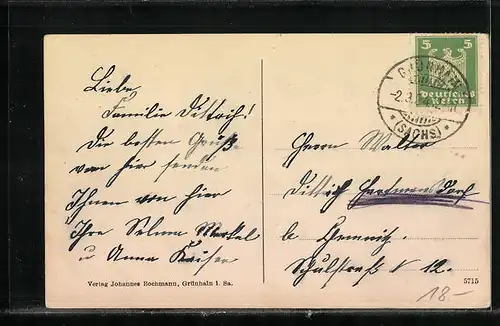 Liebe
Familie Dittrich!
Die besten Grüße
von hier senden
Ihnen von hier
Ihre Selma Merkel
u Anna Kaiser
Verlag Johannes Bochmann, Grünhain i. Sa.
5
5
Deutsches
Reich
(SACHS)
Herrn Walter
Dittrich Hartmannsdorf
b Chemnitz
Schulstraß N 12.
5715
18-